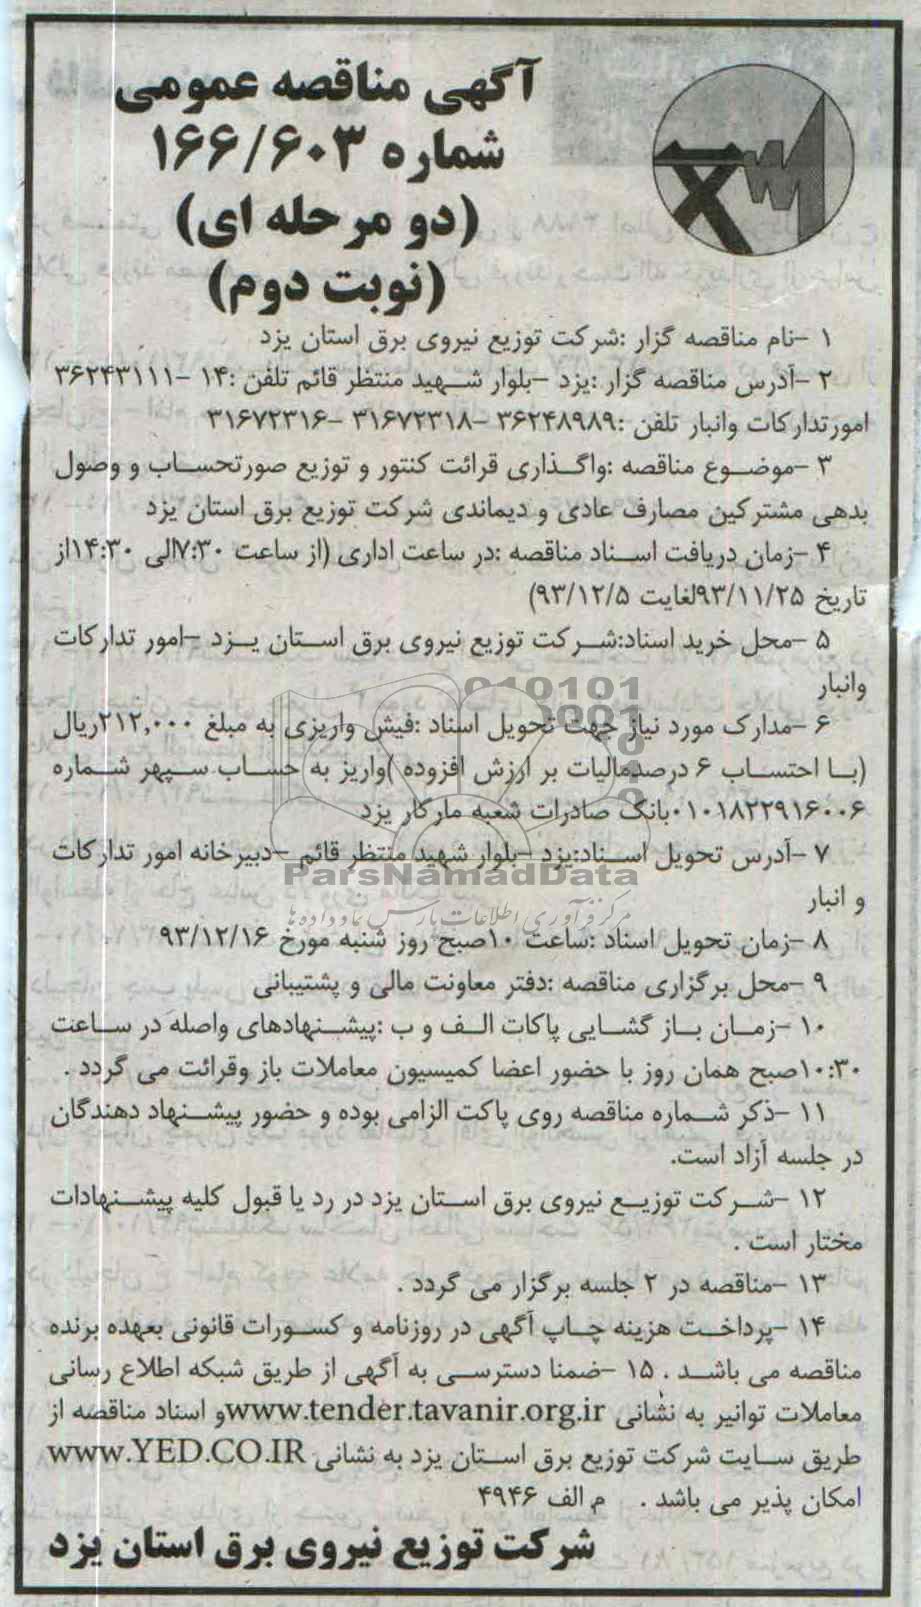 آگهی مناقصه عمومی
شماره ۱۶۶/۶۰۳
(دو مرحله ای)
(نوبت دوم)
۱ -نام مناقصه گزار :شرکت توزیع نیروی برق استان یزد
۲ -آدرس مناقصه گزار :یزد -بلوار شهید منتظر قائم تلفن :۱۴ -۳۶۲۴۳۱۱۱
امورتدارکات وانبار تلفن :۳۶۲۴۸۹۸۹- ۳۱۶۷۲۳۱۸ -۳۱۶۷۲۳۱۶
۳ -موضوع مناقصه :واگذاری قرائت کنتور و توزیع صورتحساب و وصول
بدهی مشترکین مصارف عادی و دیماندی شرکت توزیع برق استان یزد
۴ -زمان دریافت اسناد مناقصه :در ساعت اداری (از ساعت ۷:۳۰الی ۱۴:۳۰از
تاریخ ۹۳/۱۱/۲۵لغایت ۹۳/۱۲/۵)
۵ -محل خرید اسناد:شرکت توزیع نیروی برق استان یزد -امور تدارکات
وانبار
۶ -مدارک مورد نیاز جهت تحویل اسناد :فیش واریزی به مبلغ ۲۱۲,۰۰۰ریال
(با احتساب ۶ درصدمالیات بر ارزش افزوده )واریز به حساب سپهر شماره
۰۱۰۱۸۲۲۹۱۶۰۰۶بانک صادرات شعبه مارکار یزد
۷ -آدرس تحویل اسناد:یزد -بلوار شهید منتظر قائم -دبیرخانه امور تدارکات
و انبار
ParsNamadData
مرکز فرآوری اطلاعات پارس نماد داده ها
۸ -زمان تحویل اسناد :ساعت ۱۰صبح روز شنبه مورخ ۹۳/۱۲/۱۶
۹ -محل برگزاری مناقصه :دفتر معاونت مالی و پشتیبانی
۱۰ -زمان باز گشایی پاکات الف و ب :پیشنهادهای واصله در ساعت
۱۰:۳۰صبح همان روز با حضور اعضا کمیسیون معاملات باز وقرائت می گردد .
۱۱ -ذکر شماره مناقصه روی پاکت الزامی بوده و حضور پیشنهاد دهندگان
در جلسه آزاد است.
۱۲ -شرکت توزیع نیروی برق استان یزد در رد یا قبول کلیه پیشنهادات
مختار است .
۱۳ -مناقصه در ۲ جلسه برگزار می گردد .
۱۴ -پرداخت هزینه چاپ آگهی در روزنامه و کسورات قانونی بعهده برنده
مناقصه می باشد . ۱۵ -ضمنا دسترسی به آگهی از طریق شبکه اطلاع رسانی
معاملات توانیر به نشانی www.tender.tavanir.org.irو اسناد مناقصه از
طریق سایت شرکت توزیع برق استان یزد به نشانی www.YED.CO.IR
امکان پذیر می باشد . م الف ۴۹۴۶
شرکت توزیع نیروی برق استان یزد